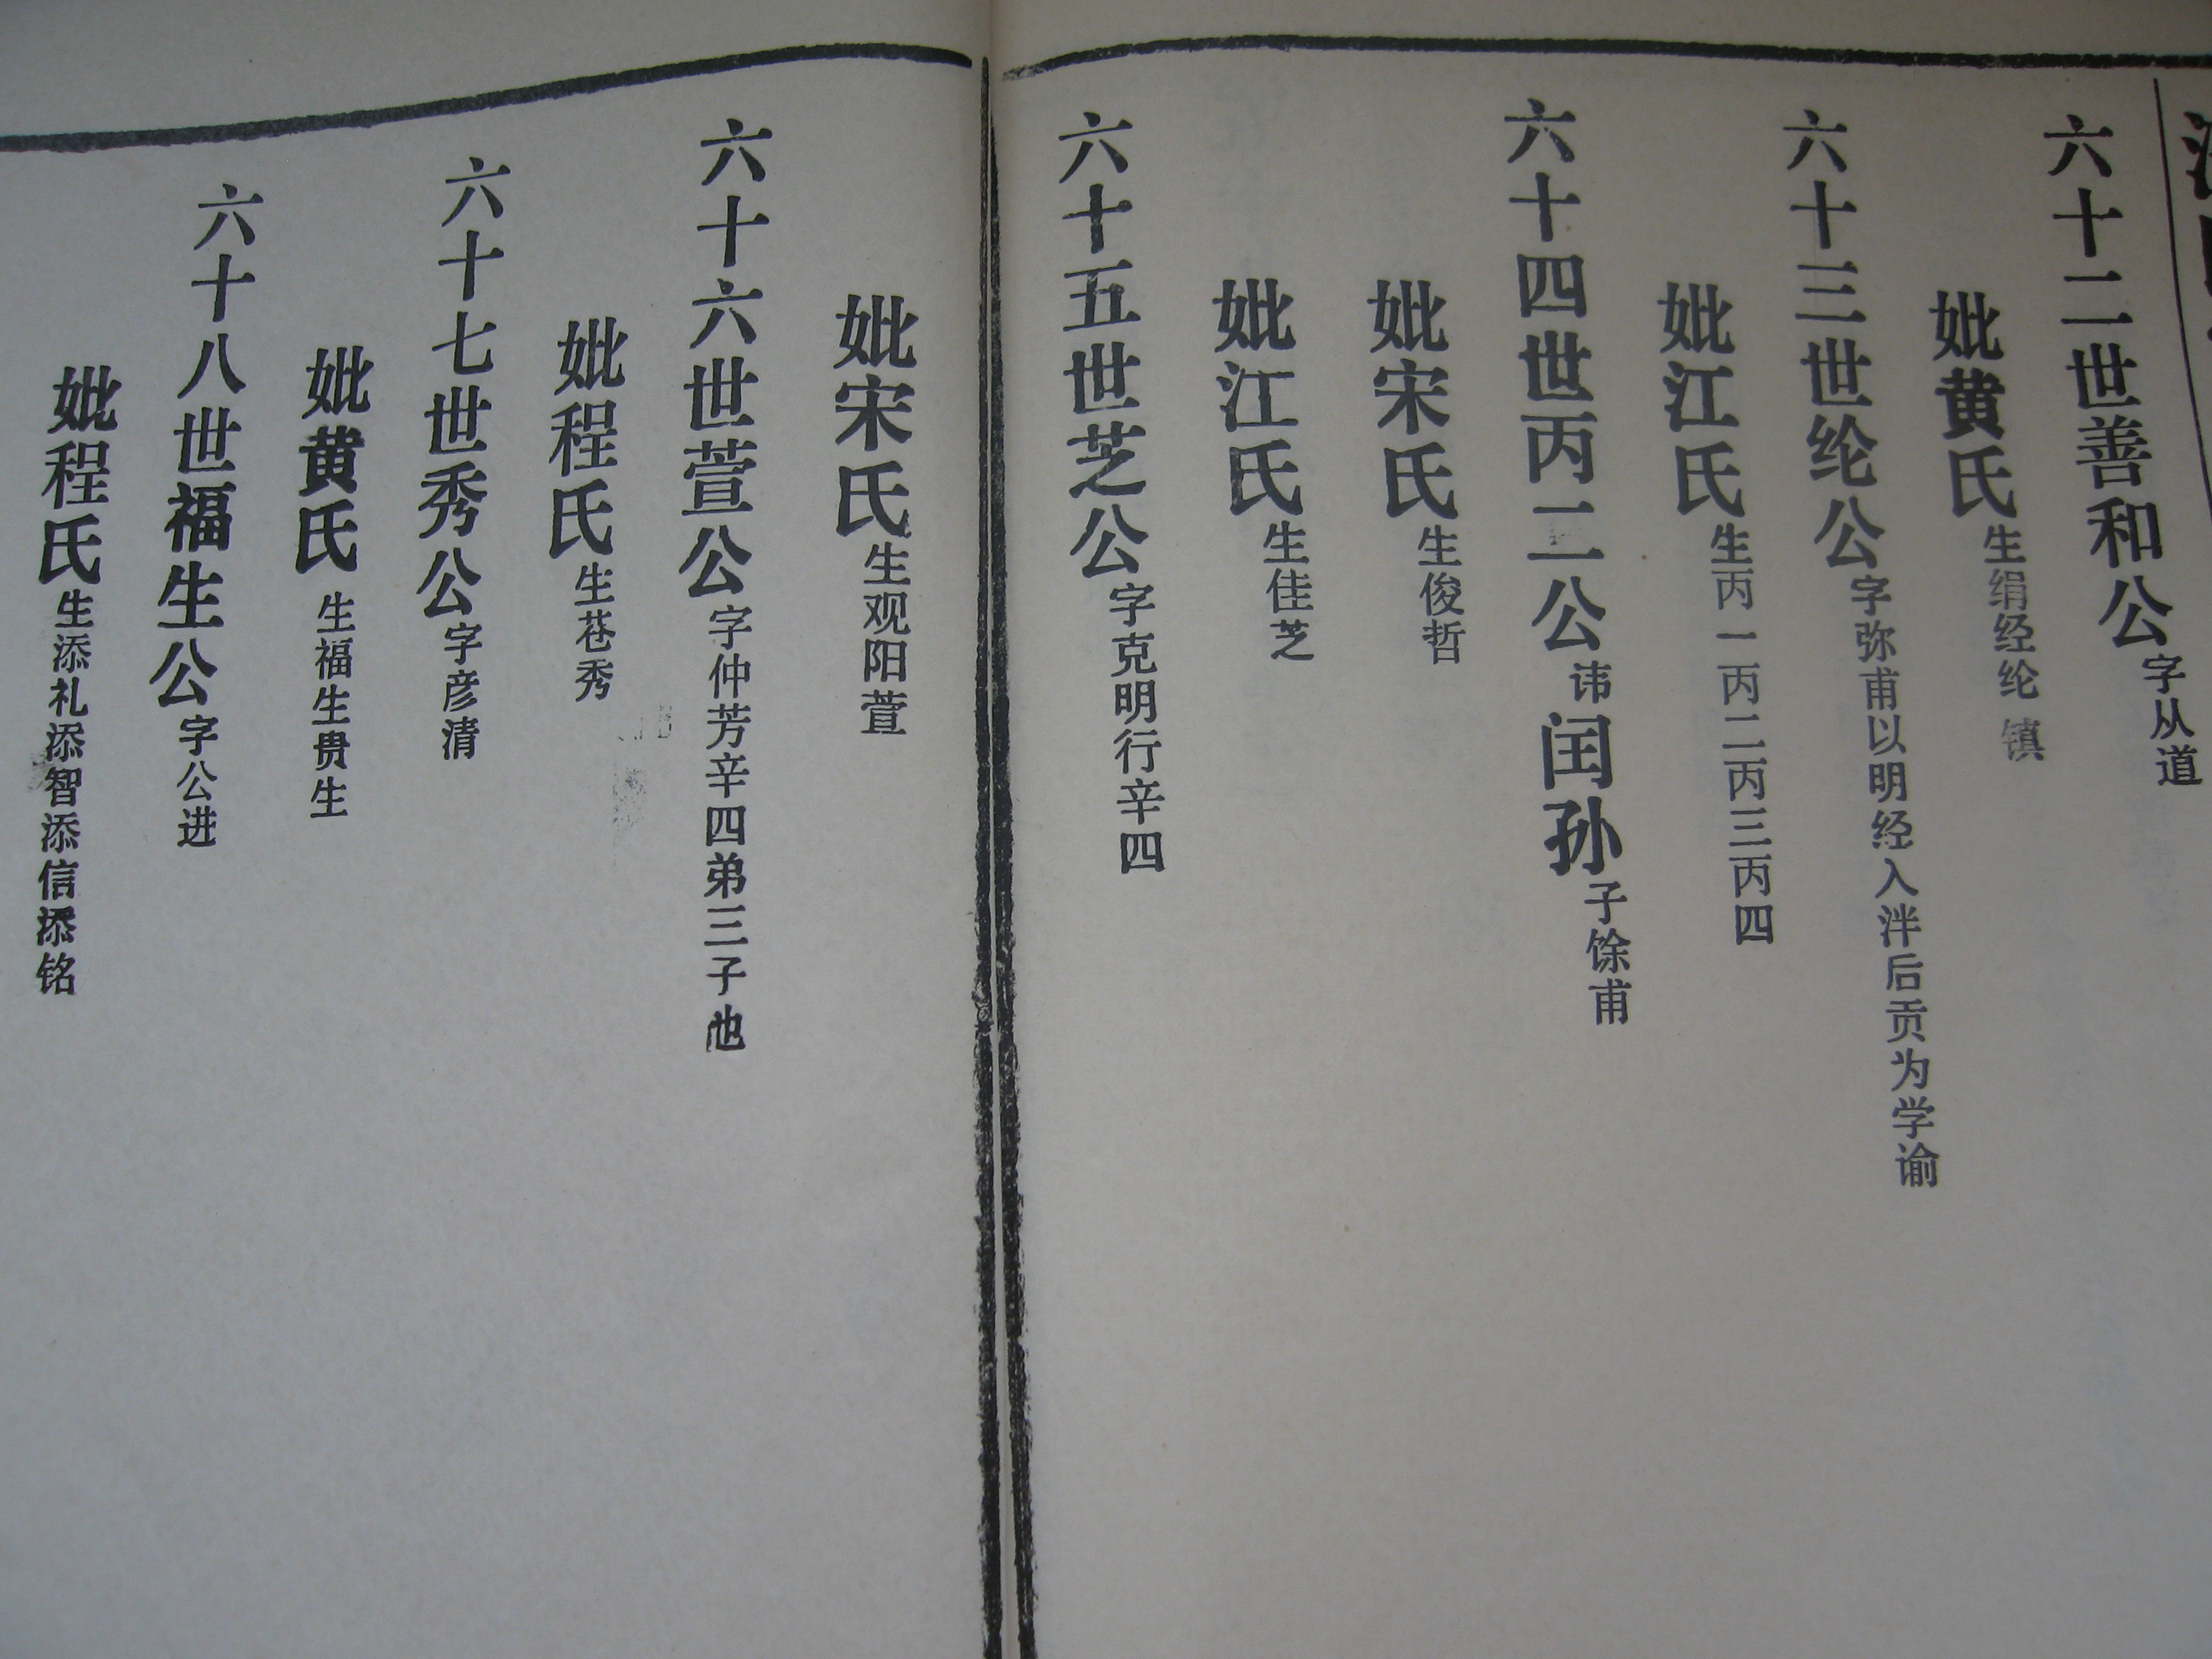 六十二世善和公字从道
妣黄氏生绢经纶镇
六十三世纶公字弥甫以明经入泮后贡为学谕
妣江氏生丙一丙二丙三丙四
六十四世丙二公讳闰孙子馀甫
妣宋氏生俊哲
妣江氏生佳芝
六十五世芝公字克明行辛四
妣宋氏生观阳萱
六十六世萱公字仲芳辛四弟三子也
妣程氏生苍秀
六十七世秀公字彦清
妣黄氏生福生贵生
六十八世福生公字公进
妣程氏生添礼添智添信添铭